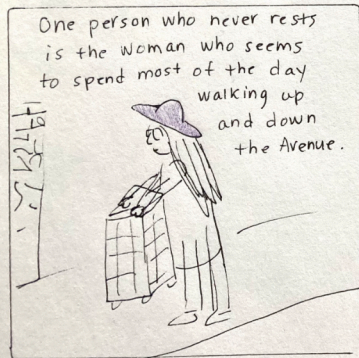 One person who never rests
is the woman who seems
to spend most of the day
walking up
and down
the Avenue.